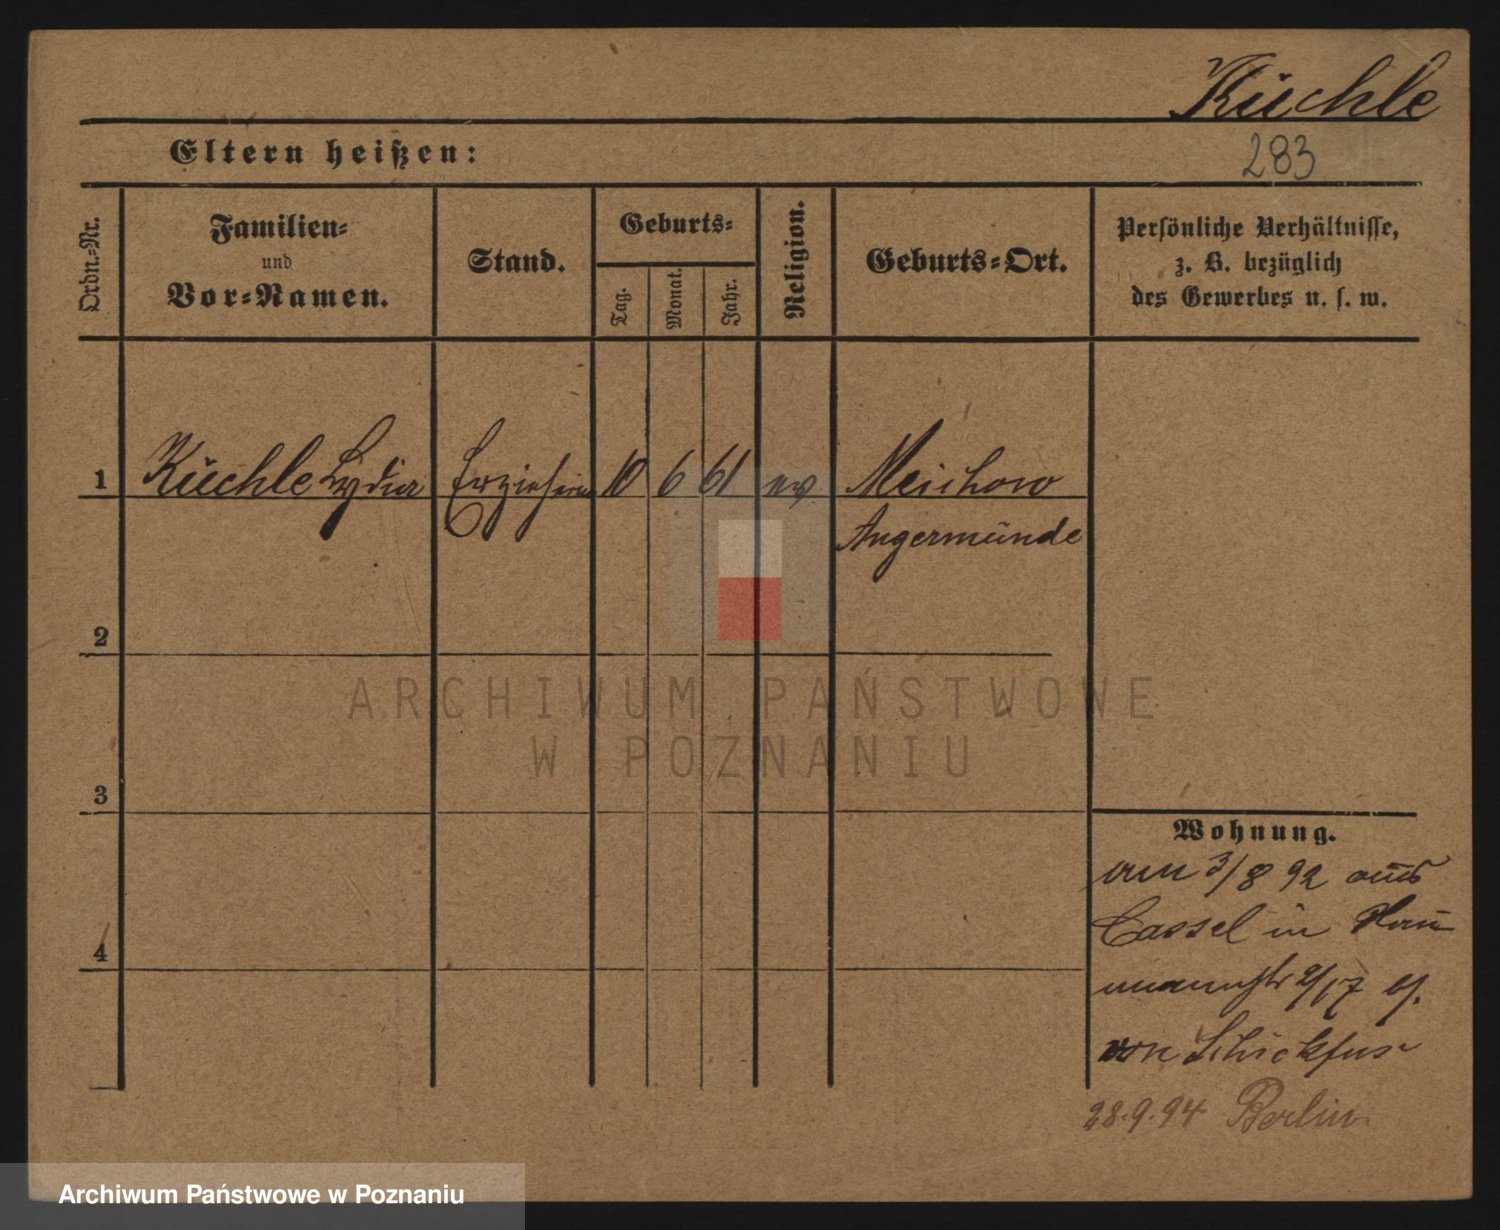 Küchle
Eltern heißen:
283
Ordn.-Nr.
Familien-
und
Vor-Namen.
Stand.
Geburts-
Tag.
Monat.
Jahr.
Religion.
Geburts-Ort.
Persönliche Verhältnisse,
z. B. bezüglich
des Gewerbes u. s. w.
1 Küchle Lydia Erzieherin 10 6 61 ev Meichow
Angermünde
2
ARCHIWUM PAŃSTWOWE
W POZNANIU
3
Wohnung.
am 3/8 92 aus
Cassel in
4
von Schickfus
28.9.94 Berlin
Archiwum Państwowe w Poznaniu